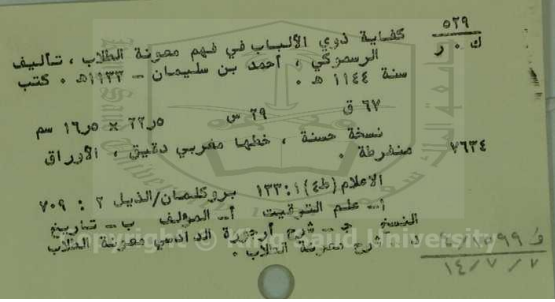 ٥٢٩
ك ٠ ر
كفاية ذوي الألباب في فهم معونة الطلاب ، تأليف
الرسموكي ، أحمد بن سليمان - ١١٣٣هـ ٠ كتب
سنة ١١٤٤ هـ ٠
٦٧ ق ٢٩ س ٢٢٫٥ × ١٦٫٥ سم
٧٦٣٤
نسخة حسنة ، خطها مغربي دقيق ، الأوراق
منفرطة ٠
الاعلام (ط٤) ١ : ١٣٣ بروكلمان/الذيل ٢ : ٧٠٩
أ- علم التوقيت أ- المؤلف ب- تاريخ
النسخ ج- شرح أرجوزة الدادسي معونة الطلاب
د- شرح معونة الطلاب ٠
١٤/٧/٧
Copyright © King Saud University